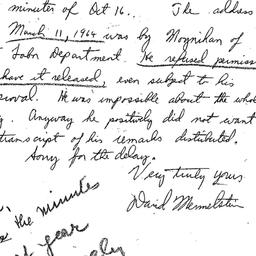 minutes of Oct 16.. The address
March 11, 1964 was by Moynihan of
Labor Department. He refused permiss
have it released, even subject to his
roval. He was impossible about the who
g. Anyway he positively did not want
transcript of his remarks distributed.
Sorry for the delay.
Very truly yours
David Memmelstein
the minutes
year